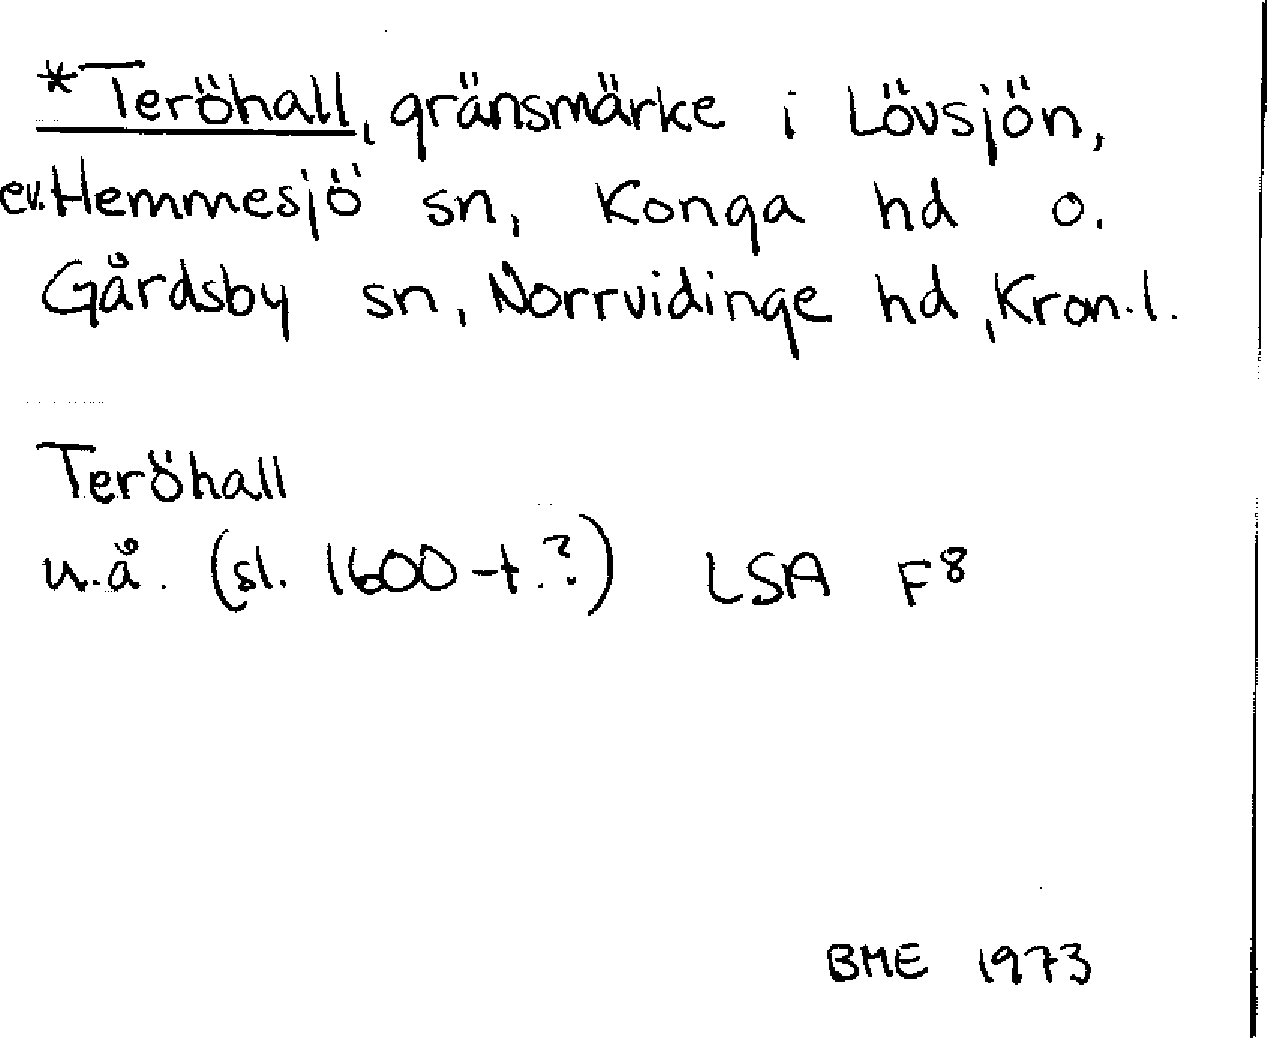 *Teröhall, gränsmärke i Lövsjön,
ev. Hemmesjö sn, Konga hd o.
Gårdsby sn, Norrvidinge hd, Kron.l.
Teröhall
u.å. (sl. 1600-t.?) LSA F8
BME 1973